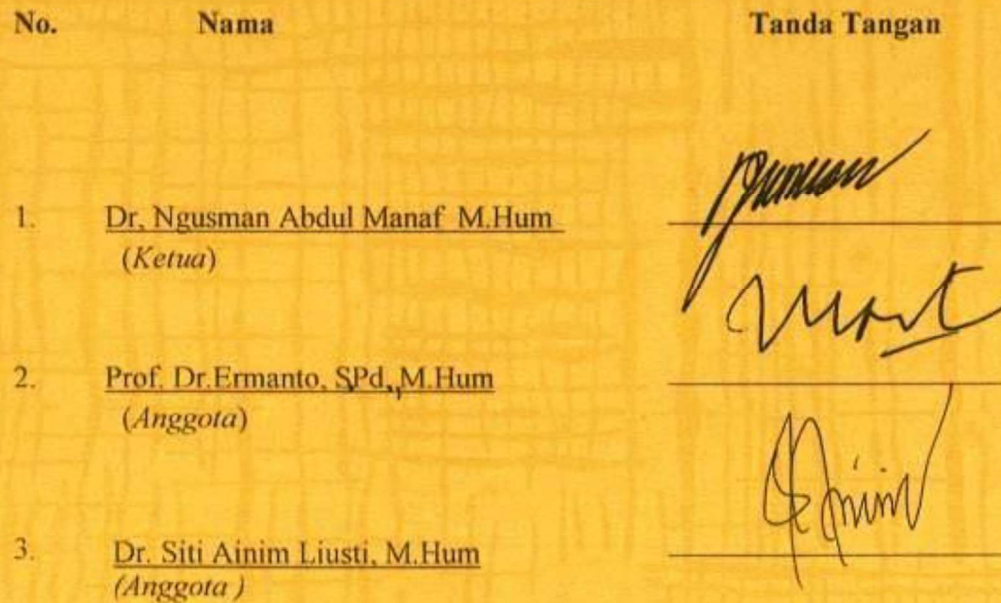 No. Nama Tanda Tangan
1. Dr, Ngusman Abdul Manaf M.Hum
(Ketua)
2. Prof. Dr.Ermanto, SPd., M.Hum
(Anggota)
3. Dr. Siti Ainim Liusti, M.Hum
(Anggota )